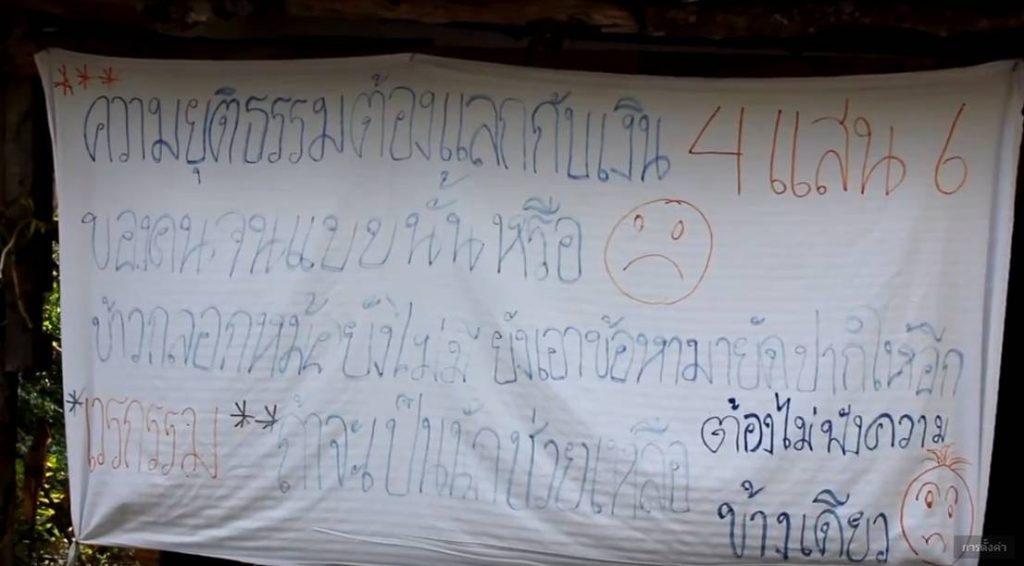 ***
ความยุติธรรมต้องแลกกับเงิน 4 แสน 6
ของคนจนแบบนั้นหรือ
ข้าวกลอกหม้อยังไม่มี ยังเอาข้อหามายัดปากให้อีก
*เวรกรรม ** ถ้าจะเป็นนักช่วยเหลือ
ต้องไม่ฟังความ
ข้างเดียว
การตั้งค่า